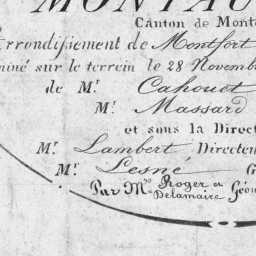 MONTAU
Canton de Monta
Arrondissement de Montfort
miné sur le terrein le 28 Novemb
de Mr Cahouet
Mr Massard
et sous la Direct
Mr Lambert Directeu
Mr Lesné G
Par Mrs Roger et Delamaire Géom